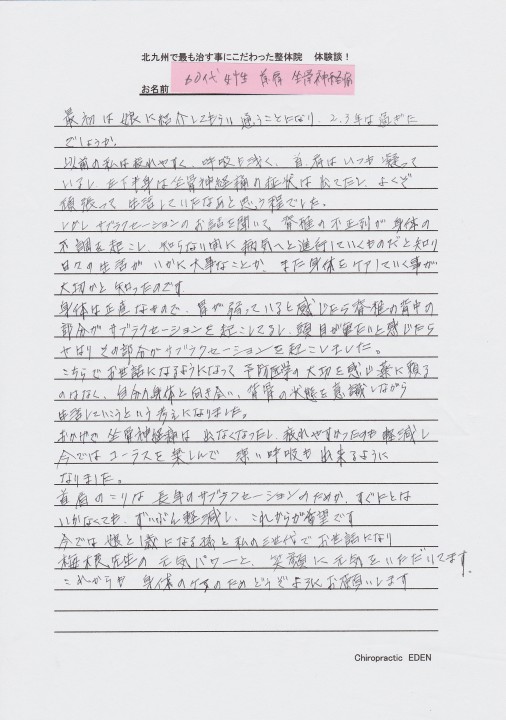 北九州で最も治す事にこだわった整体院　体験談！
お名前　60代 女性 首肩 坐骨神経痛
最初は娘に紹介してもらい通うことになり、2、3年は過ぎた
でしょうか。
以前の私は疲れやすく、呼吸も浅く、首肩はいつも凝って
いるし、左下半身は坐骨神経痛の症状は出てたし、よくぞ
頑張って生活していたなあと思う程でした。
しかし サブラクセーションのお話を聞いて、脊椎の不正列が身体の
不調を起こし、知らない間に病気へと進行していくものだと知り
日々の生活がいかに大事なことか、また身体をケアしていく事が
大切かと知ったのです。
身体は正直なもので、胃が弱っていると感じたら脊椎の背中の
部分がサブラクセーションを起こしてるし、頭 目が重たいと感じたら
やはりその部分がサブラクセーションを起こしました。
こちらでお世話になるようになって、予防医学の大切を感じ 薬に頼る
のはなく、自分の身体と向き合い、背骨の状態を意識しながら
生活していこうという考えになりました。
おかげで坐骨神経痛は 出なくなったし、疲れやすかったのも軽減し
今ではコーラスを楽しんで 深い呼吸も出来るように
なりました。
首肩のこりは 長年のサブラクセーションのためか、すぐにとは
いかなくても、ずいぶん軽減し、これからが希望です
今では娘と1歳になる孫と私の3世代でお世話になり
梅根先生の元気パワーと、笑顔に元気をいただいてます。
これからも 身体のケアのためどうぞよろしくお願いします
Chiropractic EDEN